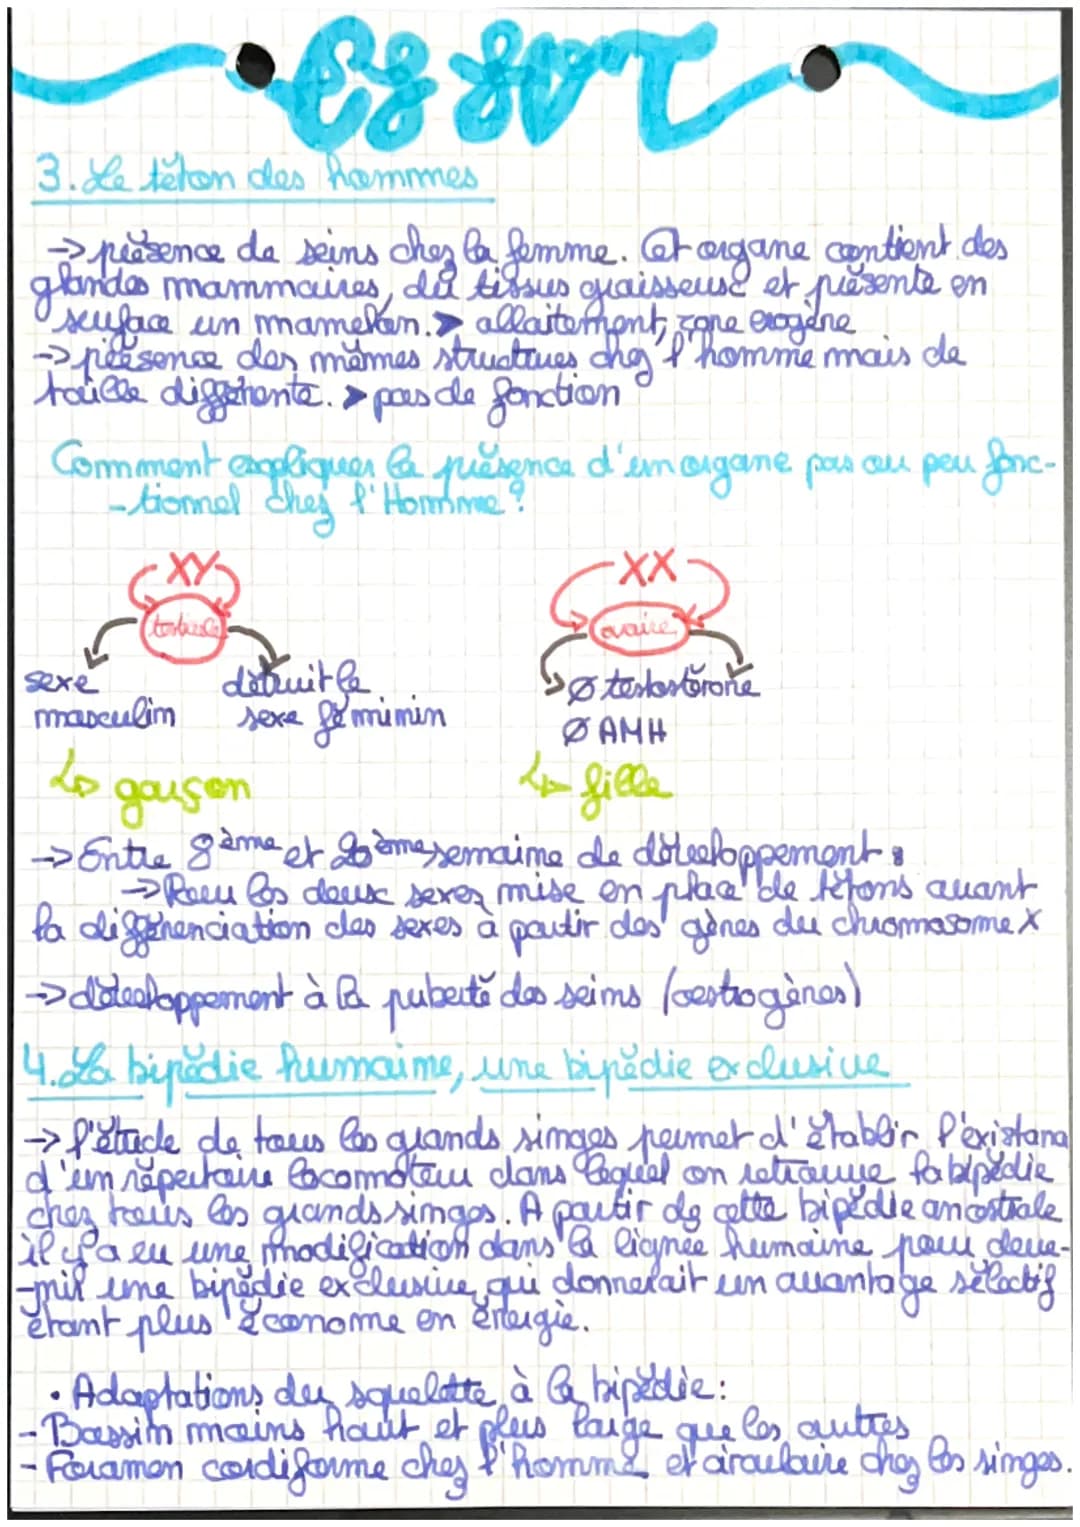 ES SVT
3. Le téton des hommes
-> présence de seins chez la femme. Cet organe contient des
glandes mammaires, du tissus graisseuse et présente en
surface un mamelon. > allaitement, zone erogène
-> présence des mêmes structures chez l'homme mais de
taille différente. > pas de fonction
Comment expliquer la présence d'un organe pas ou peu fonc-
-tionnel chez l'Homme ?
XY
XX
testicule
ovaire
sexe
masculin
détruit le
sexe féminin
Ø testostérone
Ø AMH
↳ garçon
↳ fille
-> Entre 8ème et 20ème semaine de développement :
-> Pour les deux sexes mise en place de tétons avant
la différenciation des sexes à partir des gènes du chromosome X
-> développement à la puberté des seins (oestrogènes)
4. La bipédie humaine, une bipédie exclusive
-> l'étude de tous les grands singes permet d'établir l'existanc
d'un répertoire locomoteur dans lequel on retrouve la bipédie
chez tous les grands singes. A partir de cette bipédie ancestrale
il y a eu une modification dans la lignée humaine pour deve-
-nir une bipédie exclusive qui donnerait un avantage sélectif
étant plus économe en énergie.
• Adaptations du squelette à la bipédie :
- Bassin moins haut et plus large que les autres
- Foramen cordiforme chez l'homme et circulaire chez les singes.